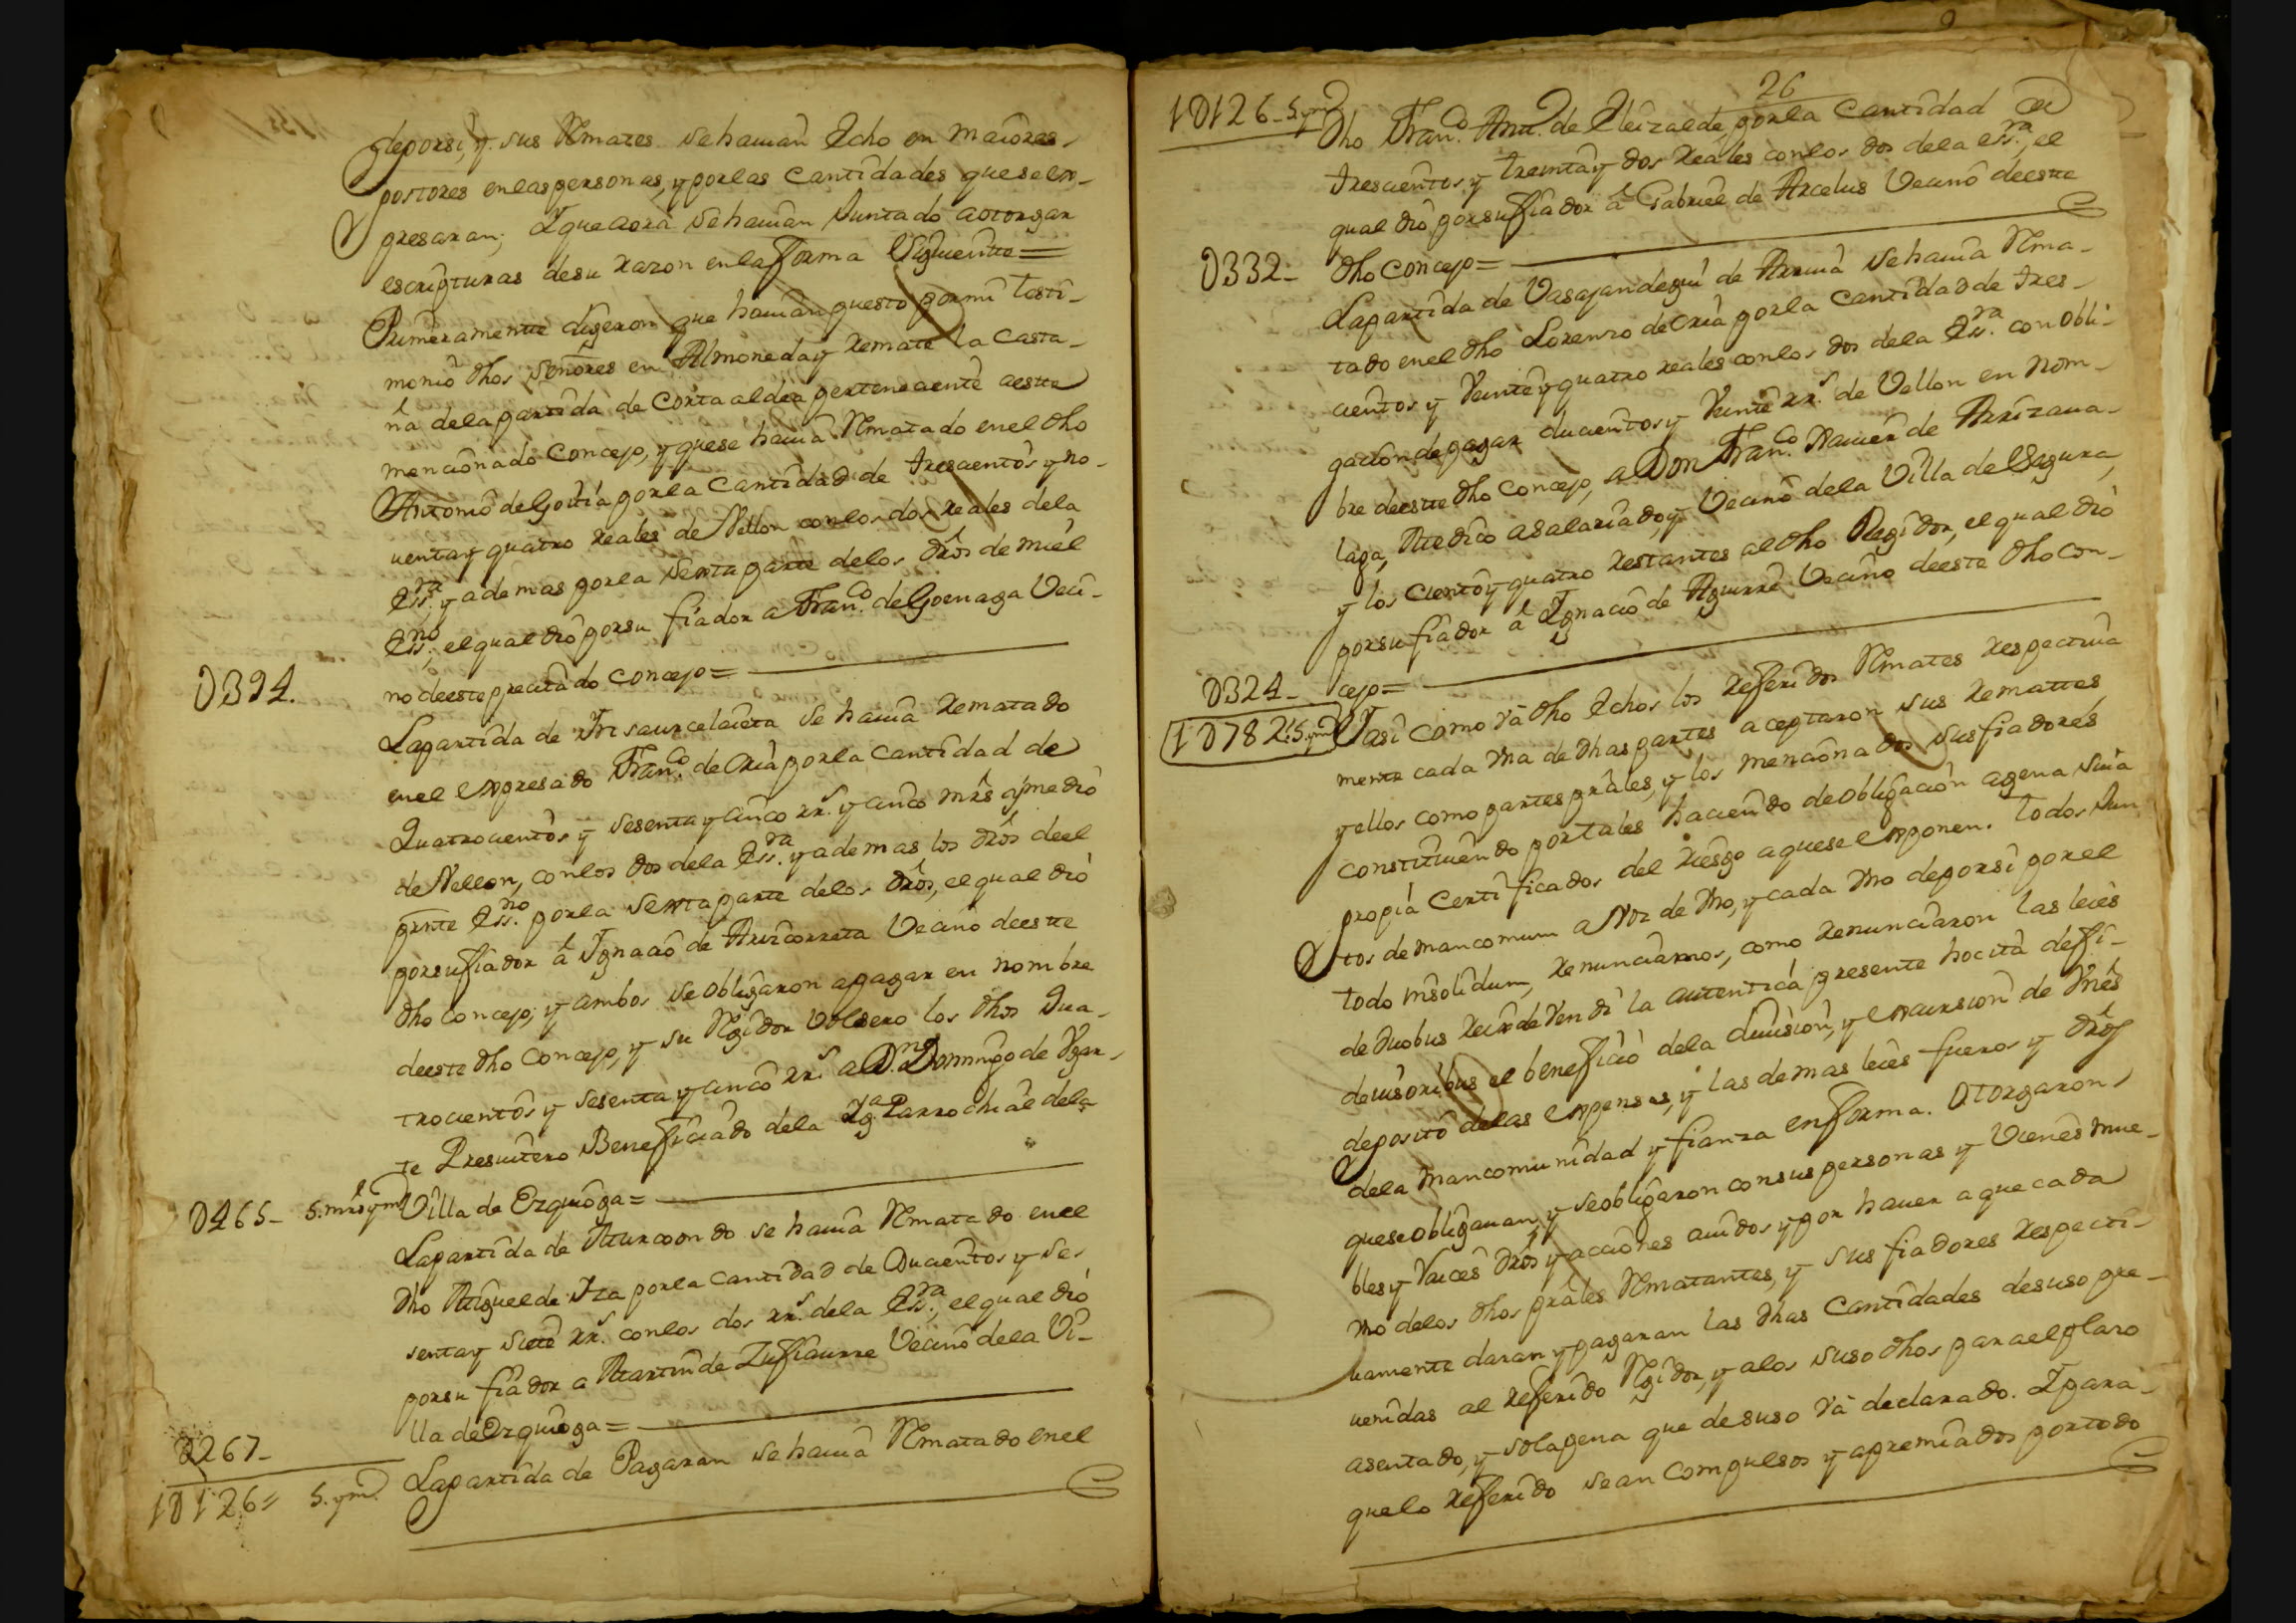 deporsi, y sus Rmates se havian Echo en maiores
postores enlas personas, y porlas Cantidades que se ex-
presaran; Y que aora se havian Juntado aotorgar
escripturas desu razon enla forma Siguiente=
Primeramentte digeron que havian puesto por mi testi-
monio dhos Señores en Almoneda y remate la Casta-
ña dela partida de Corta aldea pertenecientte aestte
mencionado Concejo, y quese havia Rmatado enel dho
Antonio de Goitia porla Cantidad de trescientos y no-
venta y quatro reales de Vellon conlos dos reales dela
Ess.ra y ademas porla sexta parte delos dros de miel
Ess.no, elqual dió porsu fiador a Fran.co de Goenaga Veci-
no deeste precitado Concejo=
0394.
Lapartida de Yrisaurcelaieta se havia rematado
enel expresado Fran.co de Oria porla cantidad de
Quatrocientos y sesenta y cinco rr.s y cinco mrs y medio
de Vellon, conlos dos dela Ess.ra y ademas los dros deel
press.te Ess.no porla sexta parte delos dros, elqual dió
porsufiador á Ygnacio de Arizcorreta Vecino deestte
dho Concejo; y ambos se obligaron apagar en nombre
deeste dho Concejo, y su Rgidor Volsero los dhos Qua-
trocientos y sesenta y cinco rr.s a D.n Domingo de Ygar-
te Presvitero Beneficiado dela Yg.a Parrochial dela
0465- 5.mrs ym.o Villa de Ezquioga=
Lapartida de Aturcoondo se havia Rmatado enel
dho Miguel de Yza porla cantidad de Ducientos y se-
senta y siete rr.s conlos dos rr.s dela Ess.ra, elqual dió
porsu fiador a Martin de Zufiaurre Vecino dela Vi-
lla de Ezquioga=
0267-
Lapartida de Pagaran se havia Rmatado enel
10126= 5.ym.
26
10126-5ym
dho Fran.co Ant.o de Eleizalde, porla Cantidad de
trescientos y treinta y dos reales conlos dos dela ess.ra, el
qual dió porsufiador á Gabriel de Arcelus Vecino deestte
0332- dho Concejo=
Lapartida de Vasajandegui de Arriva se havia Rma-
tado enel dho Lorenzo de Oria porla Cantidad de tres-
cientos y Veinte y quatro reales conlos dos dela Ess.ra con obli-
gacion de pagar ducientos y Veinte rr.s de Vellon en nom-
bre deestte dho Concejo, a Don Fran.co Xavier de Arrizava-
laga, Medico asalariado, y Vecino dela Villa de Segura,
y los ciento y quatro restantes al dho Regidor, el qual dió
porsufiador á Ygnacio de Aguirre Vecino deeste dho Con-
0324- cejo=
10782"5.ym Y asi como vá dho Echos los referidos Rmates respectiva
mente cada vna de dhas partes aceptaron sus remattes
y ellos como partes prāles, y los mencionados susfiadores
constituiendo portales haciendo deobligacion agena suia
propia Certificados del riesgo aquese exponen. Todos Jun
tos de mancomun a Voz de Vno, y cada Vno deporsi porel
todo insolidum, renunciamos, como renunciaron las leies
de duobus rex de vendi la autentica presente hocita deffi-
deiusoribus el beneficio dela division, y excursion de Vnes
deposito delas expensas, y las demas leies fueros y dros
dela mancomunidad y fianza en forma. Otorgaron
quese obligavan, y seobligaron consus personas y Vienes mue-
bles y Raices dros y acciones avidos y por haver a que cada
Vno delos dhos prāles Rmatantes, y sus fiadores respecti-
vamente daran y pagaran las dhas Cantidades desuso pre-
venidas al referido Rgidor, y alos suso dhos para el plazo
asentado, y sola pena que de suso vá declarado. Y para
que lo referido sean compulsos y apremiados portodo